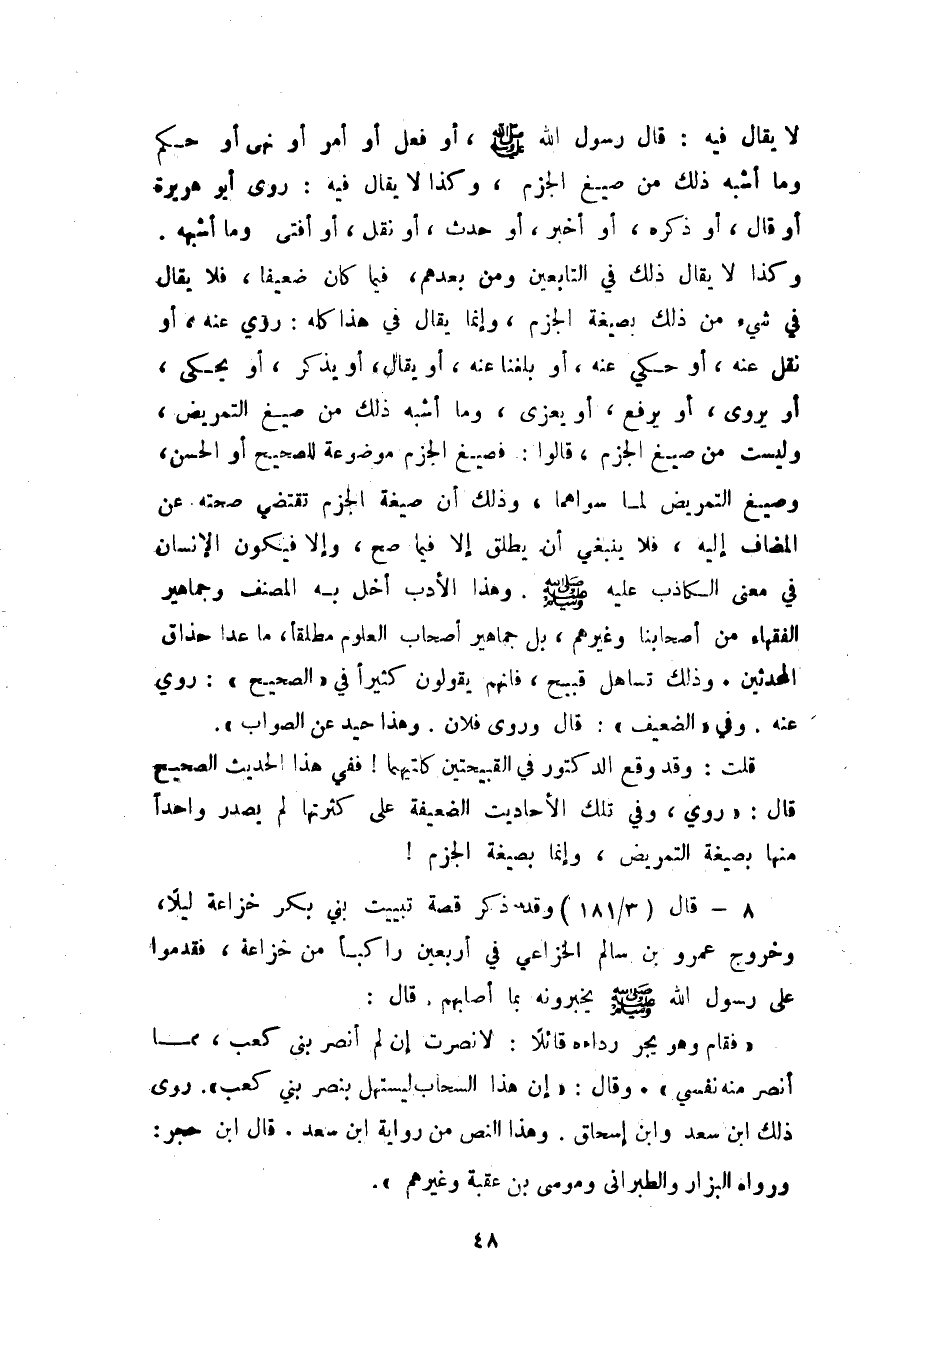 لا يقال فيه : قال رسول الله ﷺ ، أو فعل أو أمر أو نهى أو حـكم
وما أشبه ذلك من صيغ الجزم ، وكذا لا يقال فيه : روى أبو هريرة
أو قال ، أو ذكره ، أو أخبر ، أو حدث ، أو نقل ، أو أفتى وما أشبهه .
وكذا لا يقال ذلك في التابعين ومن بعدهم ، فيما كان ضعيفا ، فلا يقال
في شيء من ذلك بصيغة الجزم ، وإنما يقال في هذا كله : رؤي عنه ، أو
نقل عنه ، أو حـكي عنه ، أو بلغنا عنه ، أو يقال ، أو يذكر ، أو يحـكى ،
أو يروى ، أو يرفع ، أو يعزى ، وما أشبه ذلك من صيغ التمريض ،
وليست من صيغ الجزم ، قالوا : فصيغ الجزم موضوعة للصحيح أو الحسن ،
وصيغ التمريض لمـا سواهما ، وذلك أن صيغة الجزم تقتضي صحته عن
المضاف إليه ، فلا ينبغي أن يطلق إلا فيما صح ، وإلا فيكون الإنسان
في معنى الـكاذب عليه ﷺ . وهذا الأدب أخل بـه المصنف وجماهير
الفقهاء من أصحابنا وغيرهم ، بل جماهير أصحاب العلوم مطلقاً ، ما عدا حذاق
المحدثين . وذلك تساهل قبيح ، فانهم يقولون كثيراً في « الصحيح » : روي
عنه . وفي « الضعيف » : قال وروى فلان . وهذا حيد عن الصواب » .
قلت : وقد وقع الدكتور في القبيحتين كلتيهما ! ففي هذا الحديث الصحيح
قال : « روي ، وفي تلك الأحاديث الضعيفة على كثرتها لم يصدر واحداً
منها بصيغة التمريض ، وإنما بصيغة الجزم !
٨ – قال ( ٣/١٨١ ) وقد ذكر قصة تبييت بني بكر خزاعة ليلًا ،
وخروج عمرو بن سالم الخزاعي في أربعين راكبـاً من خزاعة ، فقدموا
على رسول الله ﷺ يخبرونه بما أصابهم . قال :
« فقام وهو يجر رداءه قائلًا : لا نصرت إن لم أنصر بني كعب ، ممـــا
أنصر منه نفسي » . وقال : « إن هذا السحاب ليستهل بنصر بني كعب » . روى
ذلك ابن سعد وابن إسحاق . وهذا النص من رواية ابن سعد . قال ابن حجر :
ورواه البزار والطبراني وموسى بن عقبة وغيرهم » .
٤٨